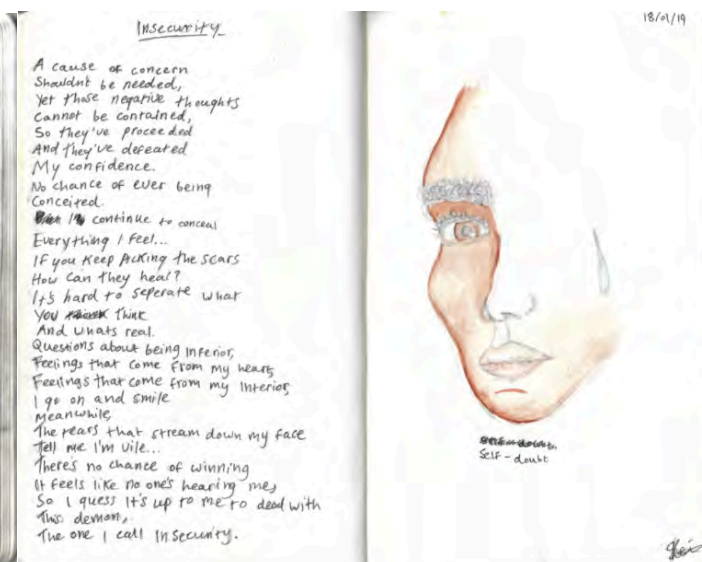 Insecurity
A cause of concern
Shouldnt be needed,
Yet those negative thoughts
Cannot be contained,
So they've proceeded
And they've defeated
My confidence.
No chance of ever being
Conceited.
I continue to conceal
Everything I feel...
If you keep picking the scars
How can they heal?
It's hard to seperate what
You think
And whats real.
Questions about being inferior,
Feelings that come from my heart,
Feelings that come from my interior,
I go on and smile
Meanwhile,
The tears that stream down my face
Tell me I'm vile...
There's no chance of winning
It feels like no one's hearing me,
So I guess it's up to me to deal with
This demon,
The one I call Insecurity.
18/01/19
Self-doubt